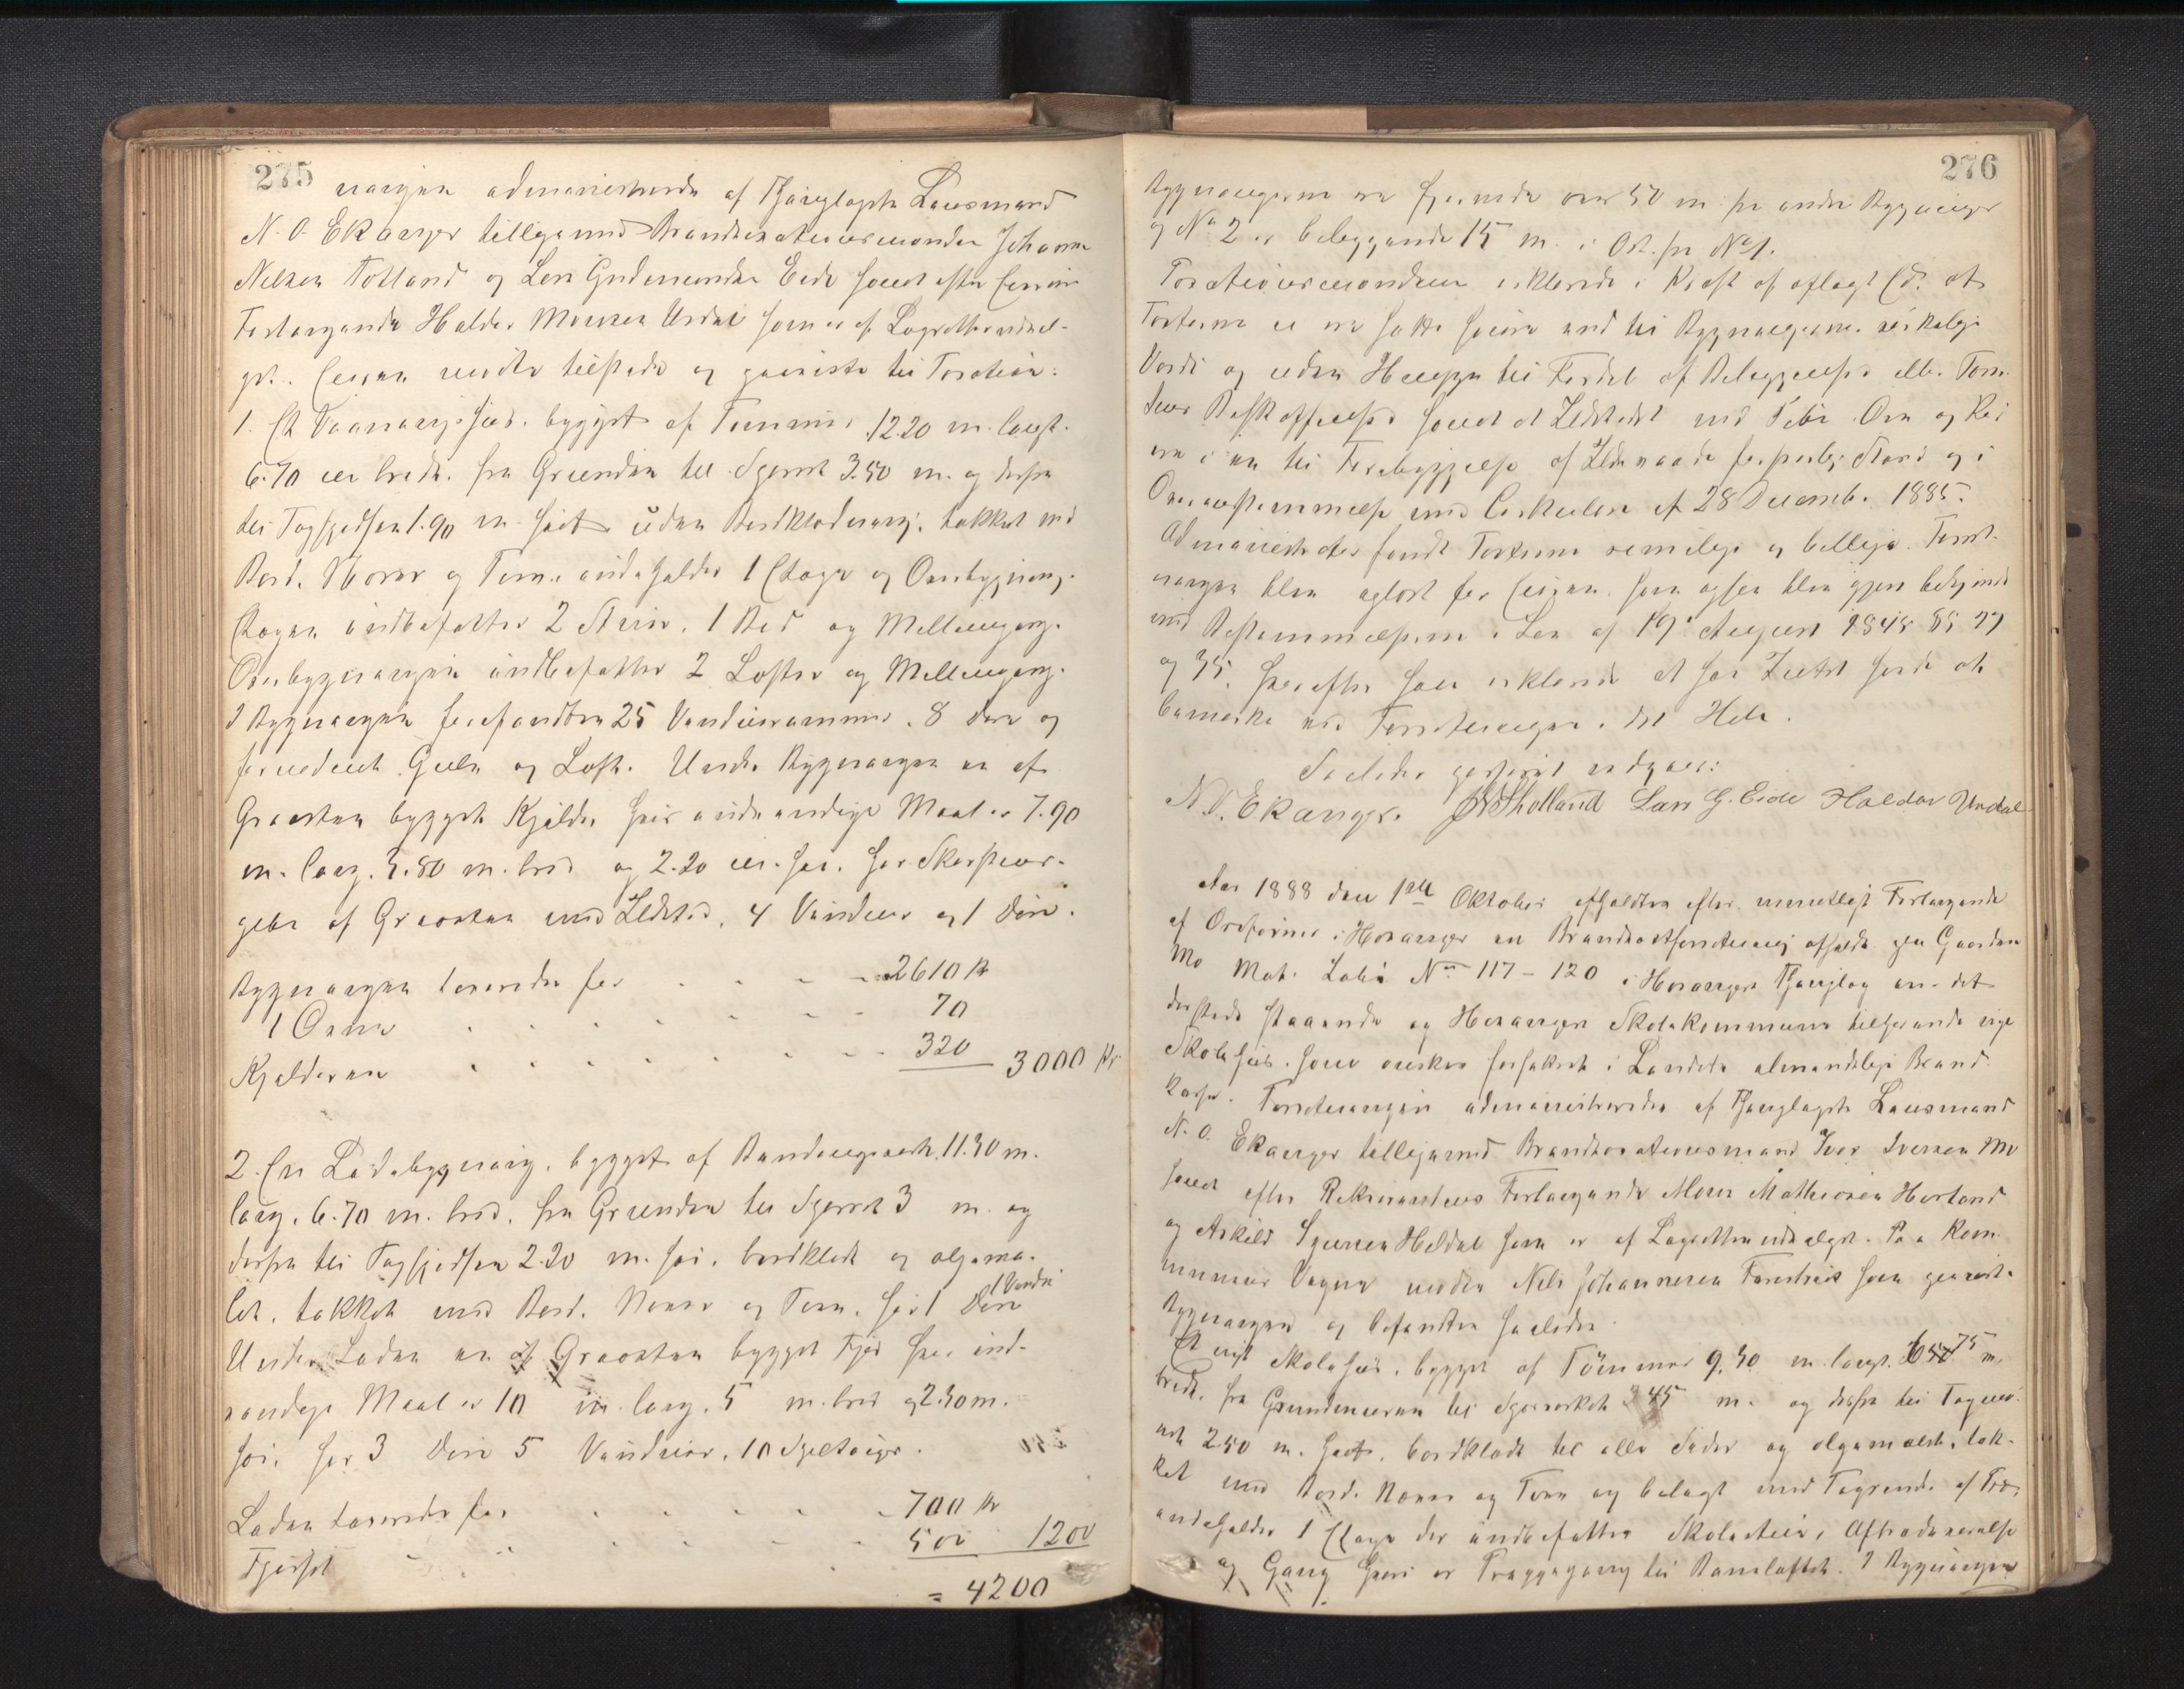 275
ningen administreredes af Thinglagets Lensmand
N. O. Ekanger tilligemed Brandtaxationsmændene Johannes
Nilsen Totland og Lars Gudmundsen Eide samt efter Eierens
Forlangende Haldor Monsen Urdal som er af Lagrettet udvæl-
get. Eieren mødte tilstede og paaviste til Taxation:
1. Et Vaaningshus, bygget af Tømmer 12.20 m. langt.
6.70 m bredt. fra Grunden til Gesimset 3.50 m. og derfra
til Tagspidsen 1.90 m. høit uden Bordklædning, tækket med
Bord, Næver og Torv, indeholder 1 Etage og Overbygning.
Etagen indbefatter 2 Stuer, 1 Bod og Mellemgang.
Overbygningen indbefatter 2 Lofter og Mellemgang.
I Bygningen forefandtes 25 Vinduesrammer, 8 Døre og
fornødent Gulv og Loft. Under Bygningen er af
Graasten bygget Kjelder hvis indvendige Maal er 7.90
m. lang. 3.80 m. bred og 2.20 m. høi, har Skorstens-
pibe af Graasten med Ildsted, 4 Vinduer og 1 Dør.
Bygningen taxeredes for 2610 Kr
1 Ovn 70
Kjelderen 320 3000 Kr
2. En Ladebygning, bygget af Bindingsværk 11.30 m.
lang, 6.70 m. bred, fra Grunden til Gesimset 3 m. og
derfra til Tagspidsen 2.20 m. høi, bordklædt og oljema-
let, tækket med Bord, Næver og Torv, har 1 Dør 1 Vindu
Under Laden er af Graasten bygget Fjøs hvis ind-
vendige Maal er 10 m. lang, 5 m. bred og 2.30 m.
høi, har 3 Døre 5 Vinduer, 10
Laden taxeredes for 700 Kr
Fjøset 500 1200
= 4200
276
Bygningerne er fjernede over 50 m fra andre Bygninger
og No 2 er beliggende 15 m. i Ost. fra No 1.
Taxationsmændene erklærede i Kraft af aflagt Ed at
Taxterne er ansatte saavel med til Bygningernes virkelige
Værdi og uden Hensyn til Fordel af Beliggenhed eller Tom-
tens Beskaffenhed samt at Ildstedet med Pibe, Ovn og Rør
er i en til Forebyggelse af Ildsvaade forsvarlig Stand og i
Overensstemmelse med Cirkulære af 28 Decemb. 1885.
Administrator fandt Taxterne rimelige og billige. Forret-
ningen blev oplæst for Eieren som ogsaa blev gjort bekjendt
med Bestemmelserne i Lov af 19 August 1845 §§ 27
og 35, hvorefter han erklærede at han Intet havde at
bemærke ved Forretningen i det Hele.
Saaledes passeret vedgaaes:
N. O. Ekanger. J N Thotland Lars G. Eide Haldor Urdal
Aar 1888 den 1ste Oktober afholdtes efter mundtlig Forlangende
af Ordfører i Hosanger en Brandtaxtforretning afholdt paa Gaarden
Mo Mat. Løbe No 117 – 120 i Hosanger Thinglag over det
dersteds staaende og Hosanger Skolekommune tilhørende nye
Skolehus, som ønskes forsikret i Landets almindelige Brand-
kasse. Forretningen administreredes af Thinglagets Lensmand
N. O. Ekanger tilligemed Brandtaxationsmand Iver Iversen Mo
samt efter Rekvirentens Forlangende Mons Mathiesen Hartand
og Askild Heldal som er af Lagrettet udvælget. Paa Kom-
munens Vegne mødte Nils Johannesen som paaviste
Bygningen og befandtes saaledes.
Et nyt Skolehus, bygget af Tømmer 9,30 m. langt, 6 75 m.
bredt, fra Grundmuren til Gesimset 3 45 m. og derfra til Tagmøn-
net 2.50 m. høit, bordklædt til alle Sider og oljemalet, tæk-
ket med Bord, Næver og Torv og belagt med Tagrende af Træ,
indeholder 1 Etage der indbefatter Skolestue, Aftrædeværelse
og Gang hvori er Trappegang til Ramloftet. I Bygningen